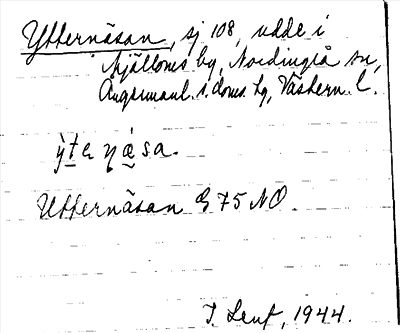 Ytternäsan, sj 108, udde i
Mjälloms by, Nordingrå sn,
Ångermanl. s. doms. hg, Västern. l.
ỳte ṇ ǽsa.
Ytternäsan G 75 NO.
1944.